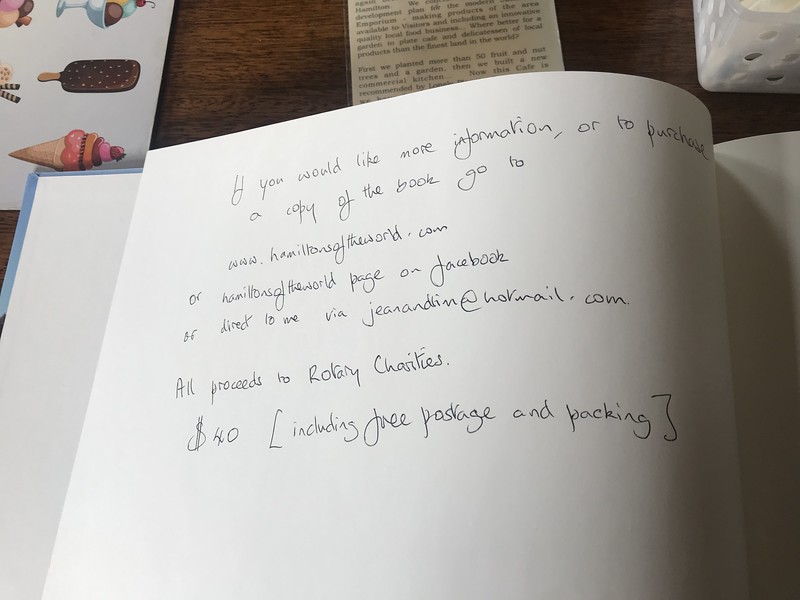 Hamilton. We
development plan for the modern
Emporium - making products of the area
available to Visitors and including an innovative
quality local food business. Where better for a
garden to plate cafe and delicatessen of local
products than the finest land in the world?
First we planted more than 50 fruit and nut
trees and a garden, then we built a new
commercial kitchen... Now this Cafe is
recommended by
If you would like more information, or to purchase
a copy of the book go to
www.hamiltonsoftheworld.com
or hamiltonsoftheworld page on facebook
or direct to me via jeanandtim@hotmail.com.
All proceeds to Rotary Charities.
$40 [including free postage and packing]